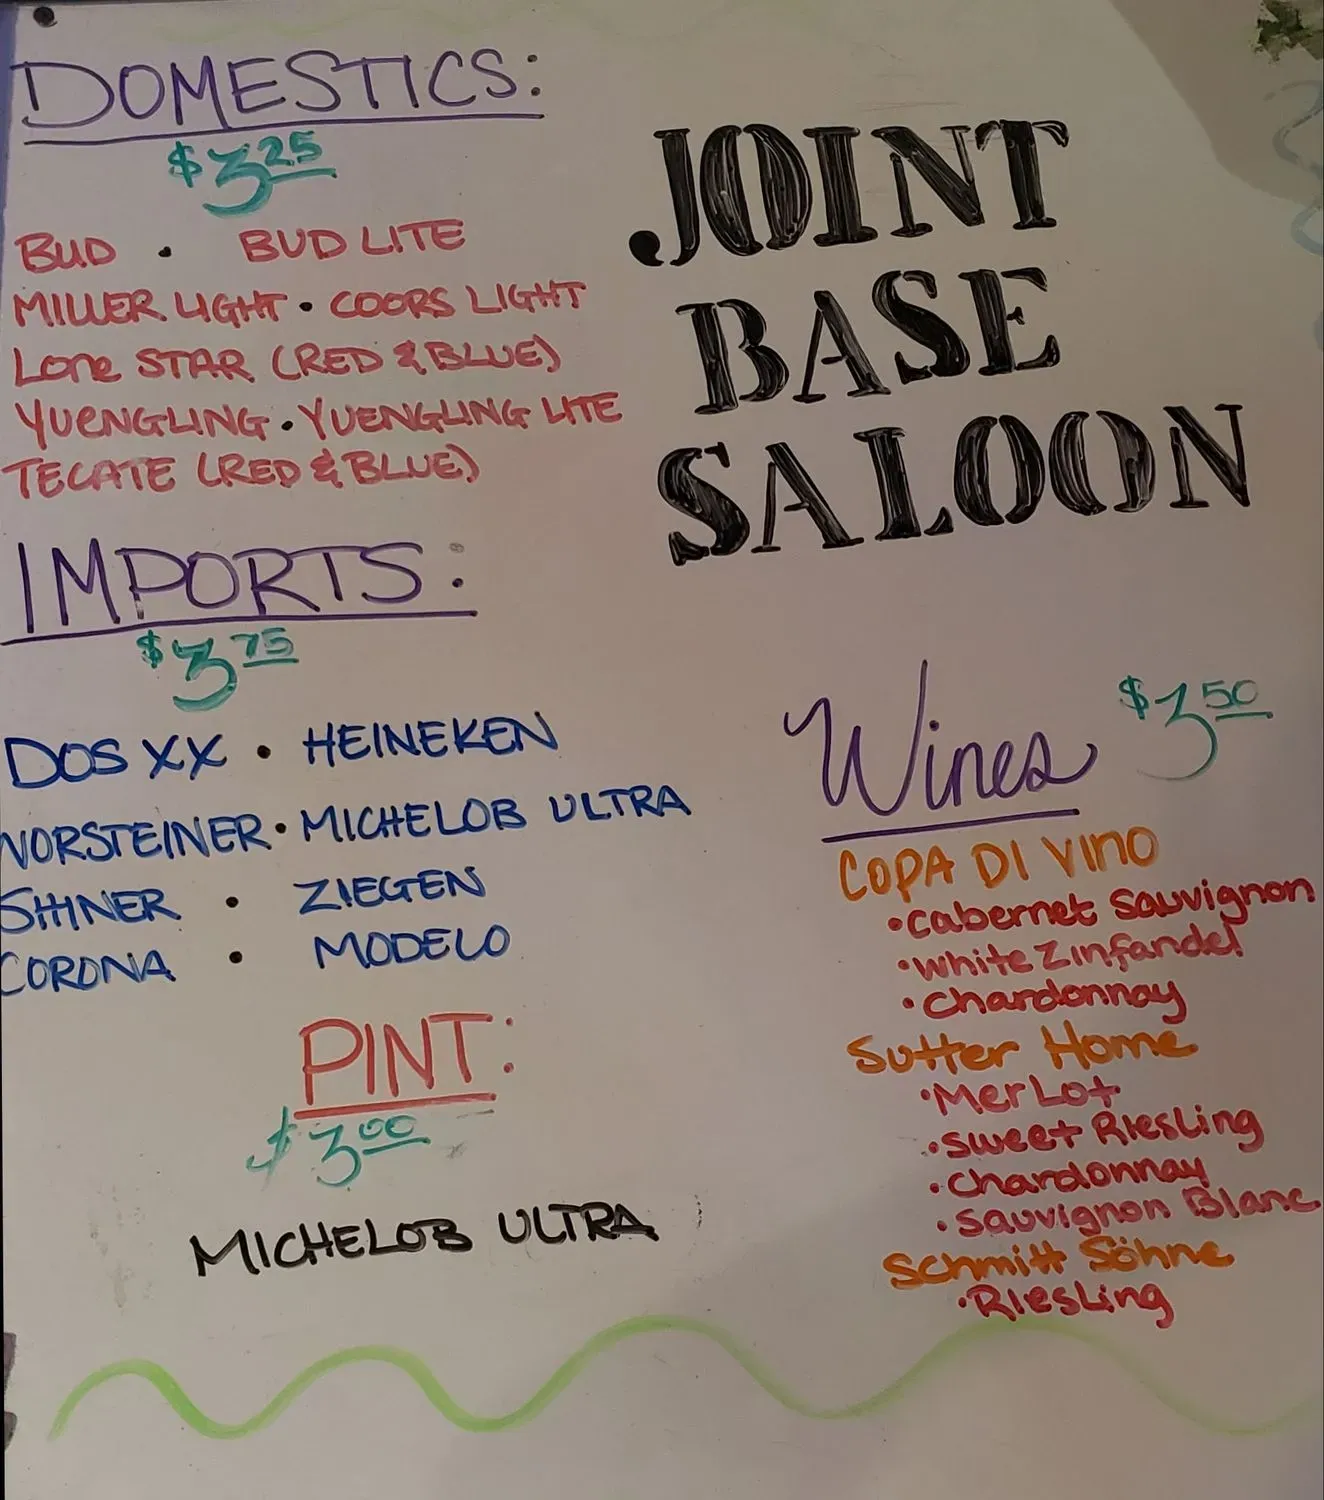 DOMESTICS:
$3.25
BUD • BUD LITE
MILLER LIGHT • COORS LIGHT
Lone STAR (RED & BLUE)
YUENGLING • YUENGLING LITE
TECATE (RED & BLUE)
IMPORTS:
$3.75
DOS XX • HEINEKEN
WORSTEINER • MICHELOB ULTRA
SHINER • ZIEGEN
CORONA • MODELO
PINT:
$3.00
MICHELOB ULTRA
JOINT
BASE
SALOON
Wines $3.50
COPA DI VINO
• Cabernet Sauvignon
• White Zinfandel
• Chardonnay
Sutter Home
• Merlot
• Sweet Riesling
• Chardonnay
• Sauvignon Blanc
Schmitt Söhne
• Riesling